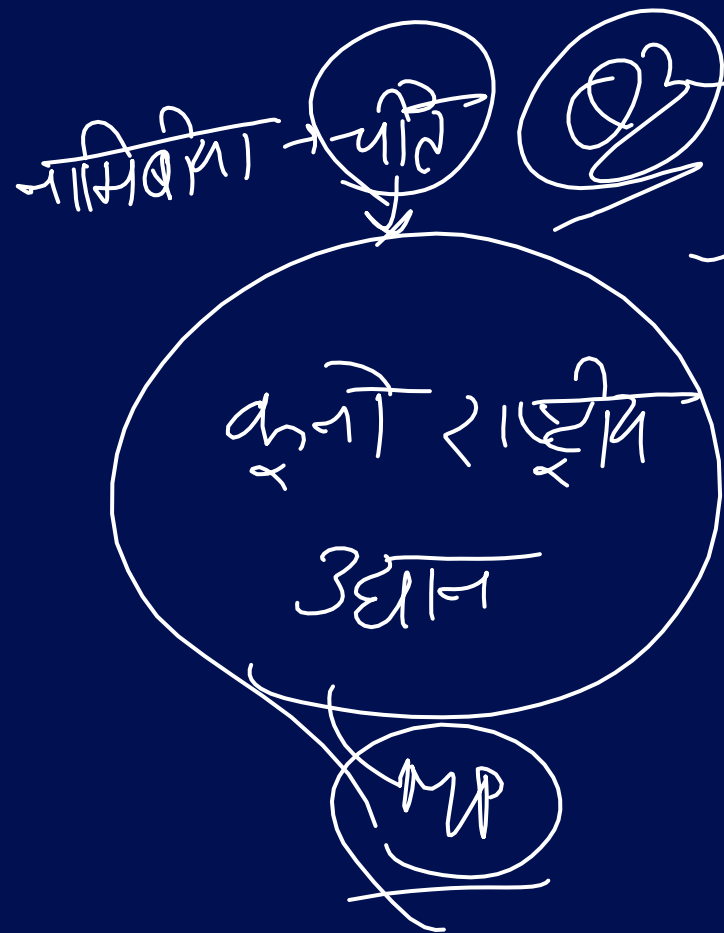 नामिबीया → चीते
कूनो राष्ट्रीय
उद्यान
MP